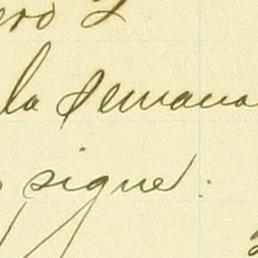 la semana
sigue.